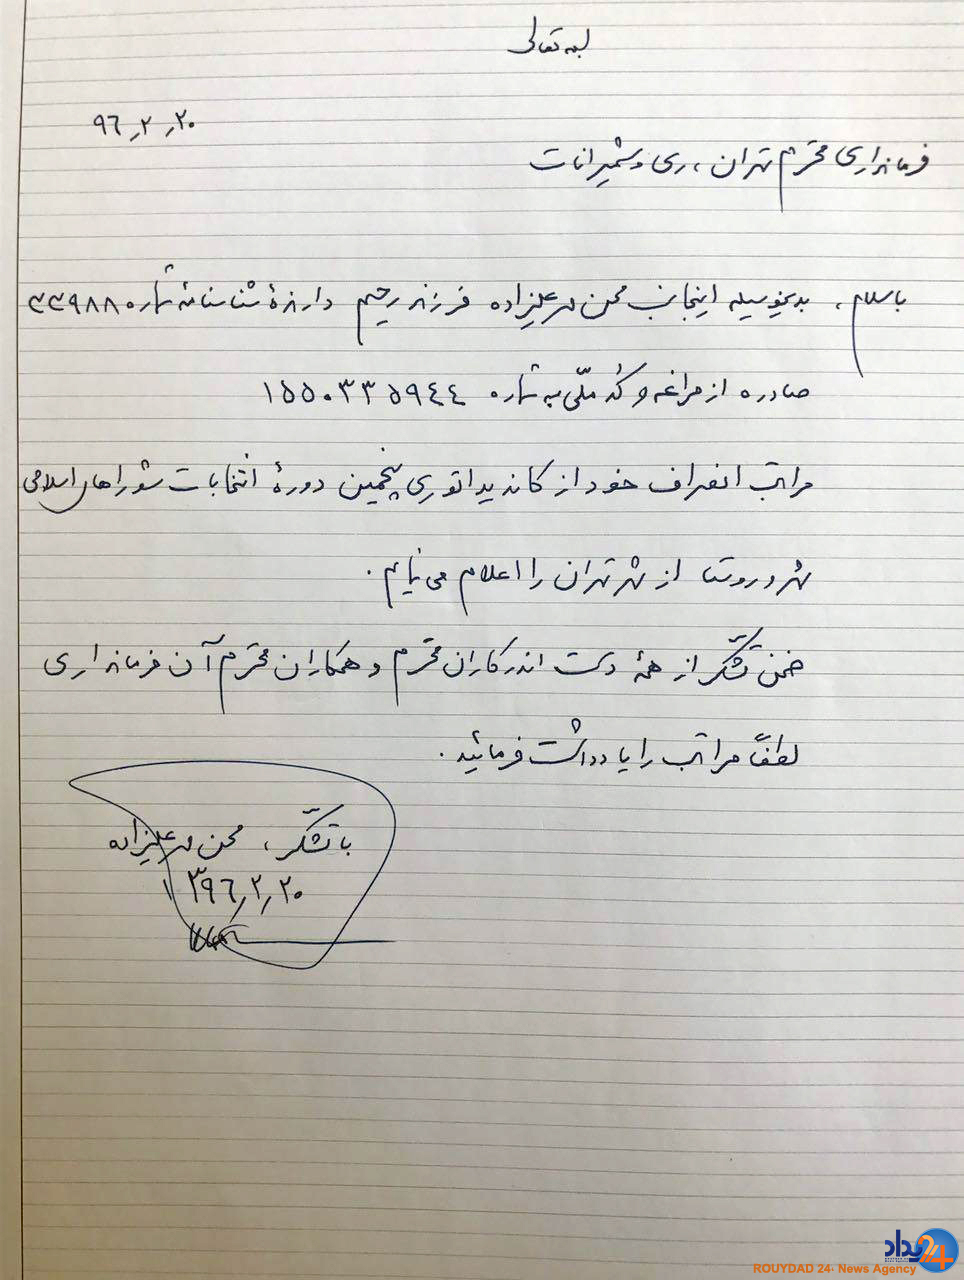 بسمه تعالی
۹۶٫۲٫۲۰
فرمانداری محترم تهران، ری و شمیرانات
با سلام، بدینوسیله اینجانب محسن مهرعلیزاده فرزند رحیم دارندهٔ شناسنامهٔ شماره ۳۳۹۸۸
صادره از مراغه و کُد ملّی به شماره ۱۵۵۰۳۳۵۹۴۴
مراتب انصراف خود از کاندیداتوری پنجمین دورهٔ انتخابات شوراهای اسلامی
شهر و روستا از شهر تهران را اعلام می‌نمایم.
ضمن تشکّر از همهٔ دست اندرکاران محترم و همکاران محترم آن فرمانداری
لطفاً مراتب را یادداشت فرمائید.
با تشکّر، محسن مهرعلیزاده
۱۳۹۶٫۲٫۲۰
رویداد 24
ROUYDAD 24- News Agency